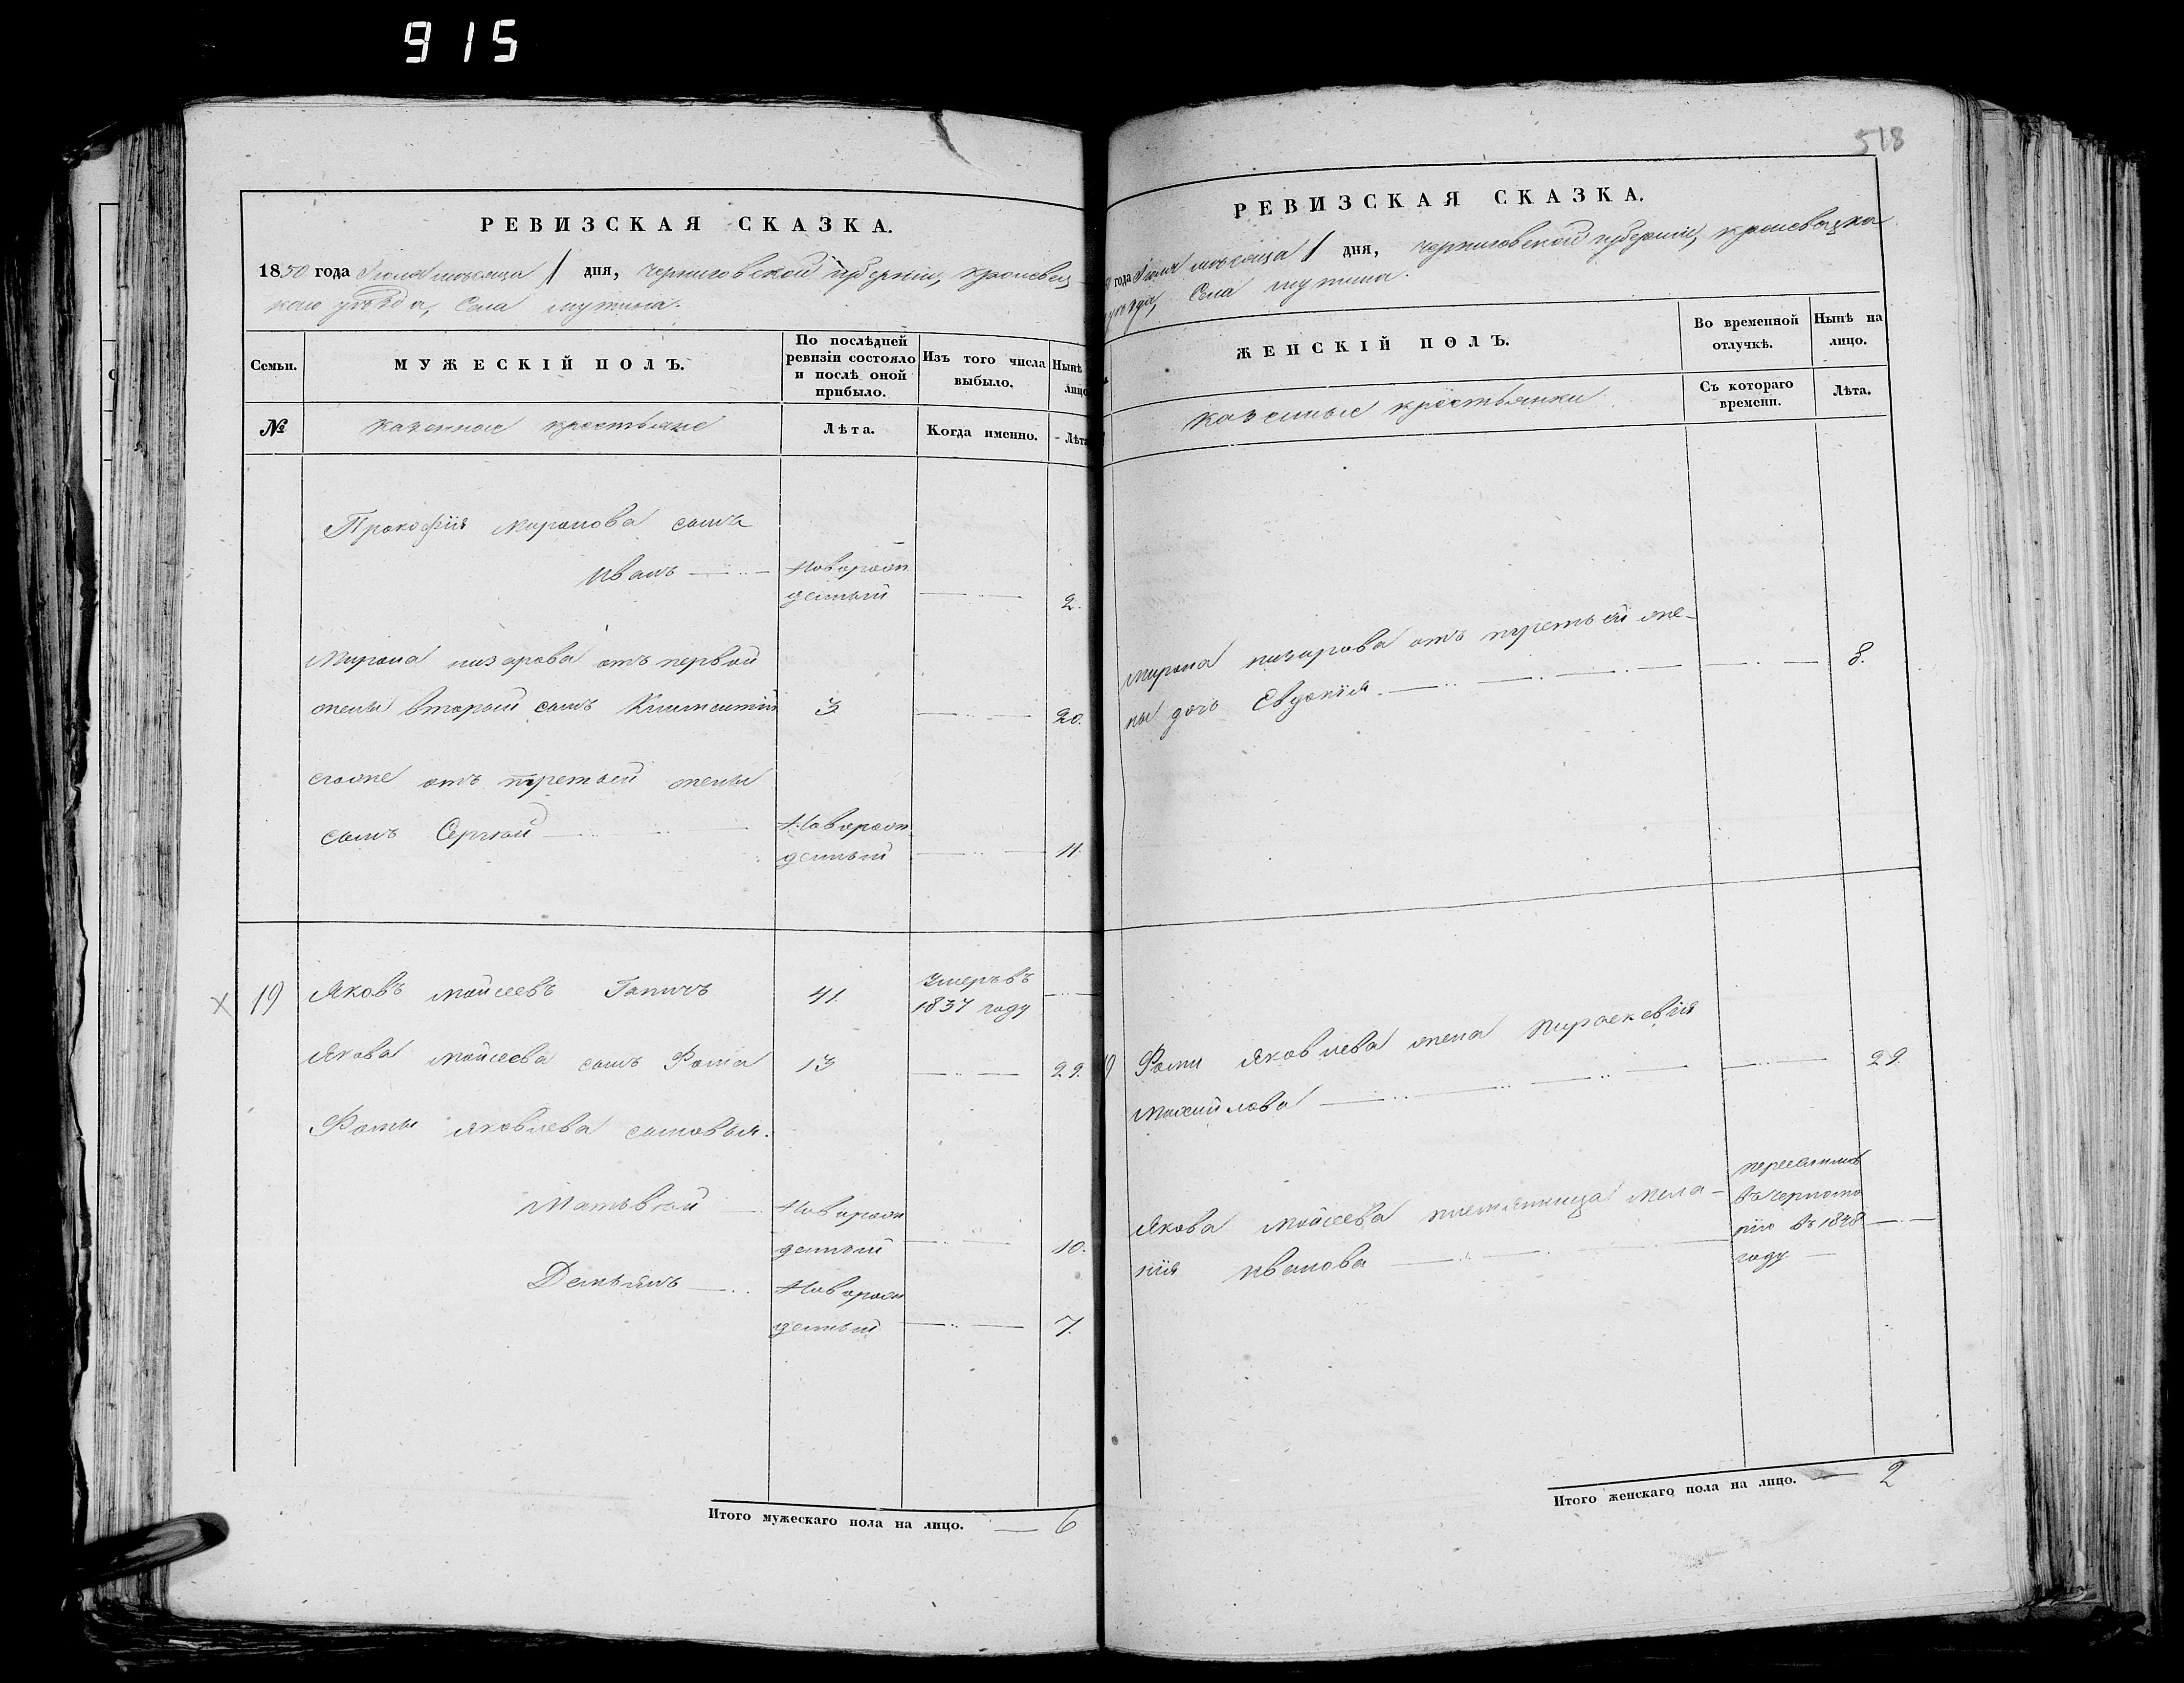 915
РЕВИЗСКАЯ СКАЗКА.
1850 года Іюля мѣсяца 1 дня, Черниговской губерніи, кролевец
каго уѣзда, Села Мутина.
Семьи. МУЖЕСКІЙ ПОЛЪ. По послѣдней ревизіи состояло и послѣ оной прибыло. Изъ того числа выбыло. Нынѣ лицо
№ Казенные крестьяне Лѣта. Когда именно. Лѣта
Прокофія Миронова сынъ
Иванъ Новорож
денный 2.
Мирона Назарова отъ первой
жены второй сынъ Климентій 3 20.
егоже отъ третьей жены
сынъ Сергѣй Новорож
денный 11.
19 Яковъ Мойсеевъ Гапичъ 41. Умеръ въ
1837 году
Якова Мойсеева сынъ Фома 13 29.
Фомы Яковлева сыновья.
Матьвѣй Новорож
денный 10.
Демьянъ Новорож
денный 7.
Итого мужескаго пола на лицо. 6
518
РЕВИЗСКАЯ СКАЗКА.
года Іюля мѣсяца 1 дня, Черниговской губерніи, кролевецка
уѣзда, Села Мутина.
ЖЕНСКІЙ ПОЛЪ. Во временной отлучкѣ. Нынѣ на лицо.
Казенные крестьянки Съ котораго времени. Лѣта.
Мирона Назарова отъ третьей же-
ны дочь Евдокія. 8.
Фомы Яковлева жена Параскевія
Михайлова 29.
Якова Мойсеева племянница Мела-
нія Иванова
въ черномо
рію въ 1848
году
Итого женскаго пола на лицо. 2